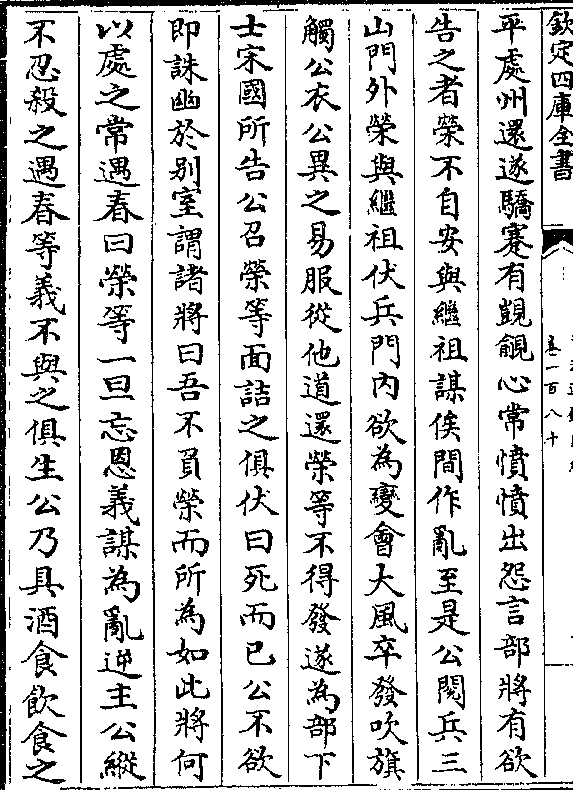 欽定四庫全書
卷一百八十
平處州還遂驕蹇有覬覦心常憤憤出怨言部將有欲
告之者榮不自安與繼祖謀俟間作亂至是公閱兵三
山門外榮與繼祖伏兵門內欲為變會大風卒發吹旗
觸公衣公異之易服從他道還榮等不得發遂為部下
士宋國所告公召榮等面詰之俱伏曰死而已公不欲
即誅幽於別室謂諸將曰吾不負榮而所為如此將何
以處之常遇春曰榮等一旦忘恩義謀為亂逆主公縱
不忍殺之遇春等義不與之俱生公乃具酒食飲食之